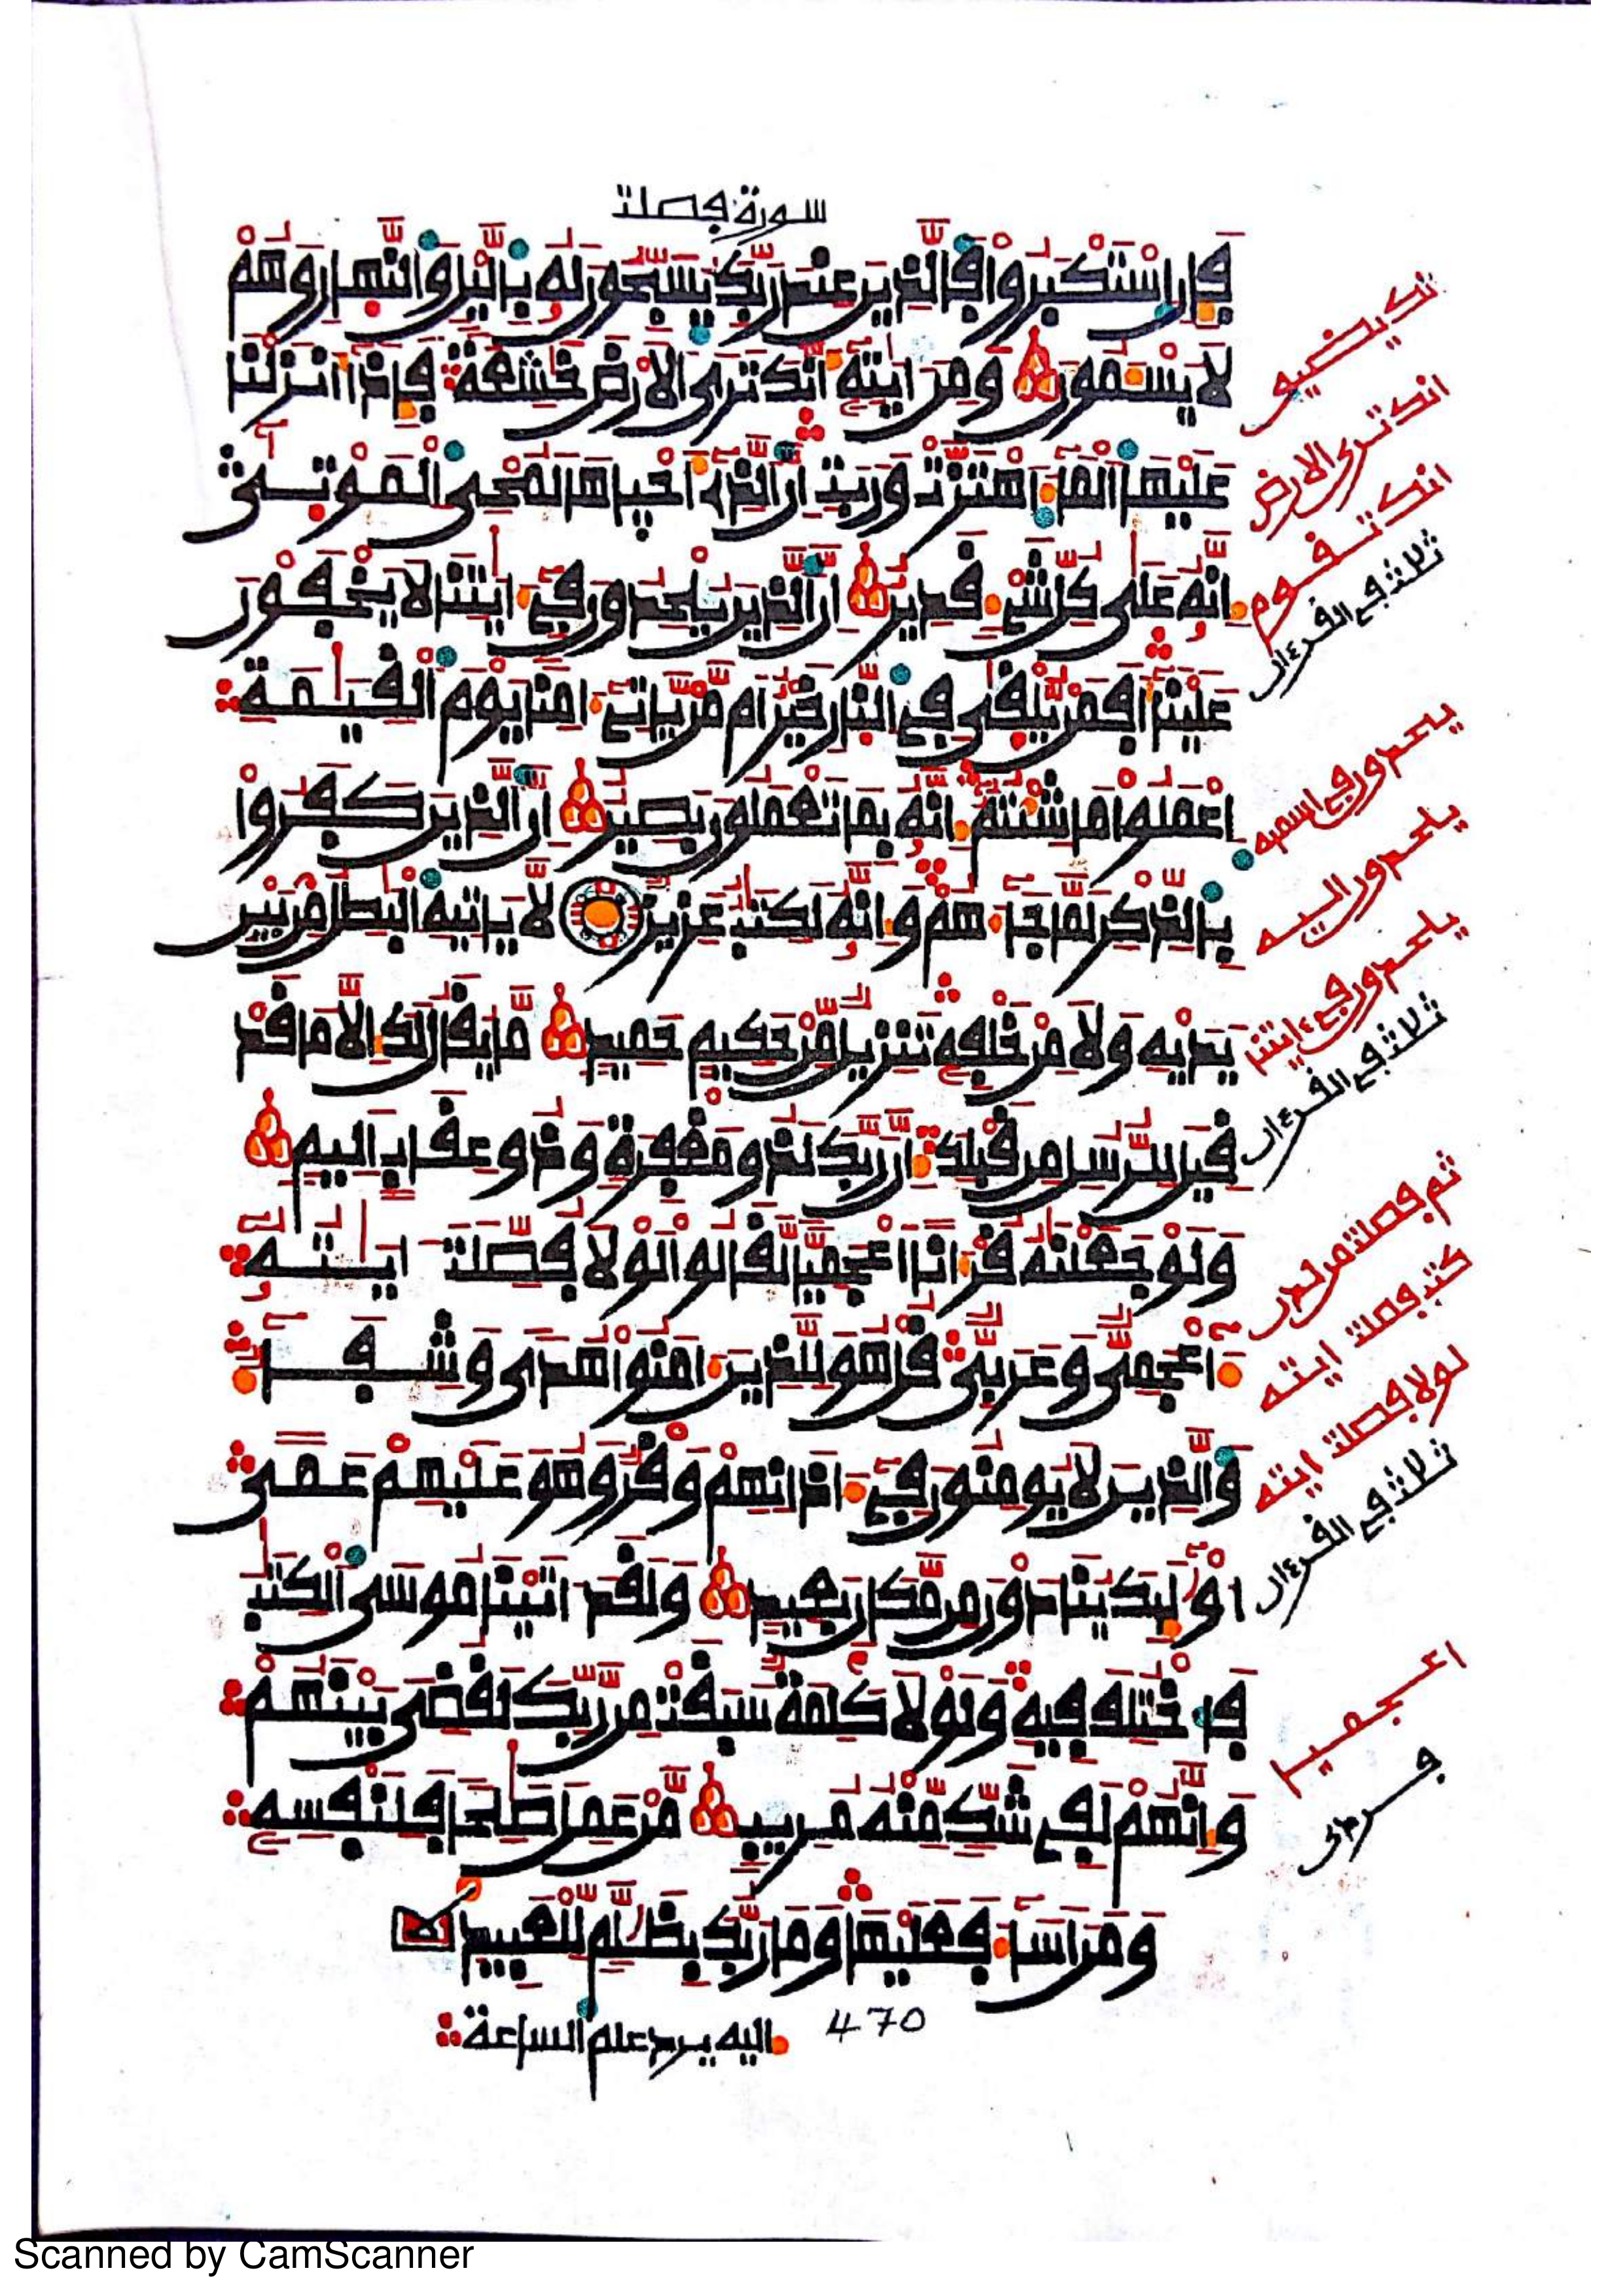 سورة فصلت
فإن استكبروا فالذين عند ربك يسبحون له باليل والنهار وهم
لا يسئمون ومن ايته أنك ترى الارض خشعة فإذا انزلنا
عليها الما اهتزت وربت ان الذى احياها لمحى الموتى
انه على كل شىء قدير ان الذين يلحدون فى ايتنا لا يخفون
علينا أفمن يلقى فى النار خير ام من ياتى امنا يوم القيمة
اعملوا ما شئتم انه بما تعملون بصير ان الذين كفروا
بالذكر لما جاهم وانه لكتب عزيز لا ياتيه البطل من بين
يديه ولا من خلفه تنزيل من حكيم حميد ما يقال لك الا ما قد
قيل للرسل من قبلك ان ربك لذو مغفرة وذو عقاب اليم
ولو جعلنه قرانا اعجميا لقالوا لولا فصلت ايته
اعجمى وعربى قل هو للذين امنوا هدى وشفا
والذين لا يومنون فى اذانهم وقر وهو عليهم عمى
اولئك ينادون من مكان بعيد ولقد اتينا موسى الكتب
فاختلف فيه ولولا كلمة سبقت من ربك لقضى بينهم
وانهم لفى شك منه مريب من عمل صلحا فلنفسه
ومن اسا فعليها وما ربك بظلم للعبيد
اليه يرد علم الساعة 470
انك ترى الارض
انك تقوم
ثلث فى القرءان
يلحدون فى اسميه
يلحدون اليه
يلحدون فى ءايتنا
ثلث فى القرءان
ثم فصلت من لدن
كتب فصلت ايته
لولا فصلت ايته
ثلث فى القرءان
اعجميا
Scanned by CamScanner